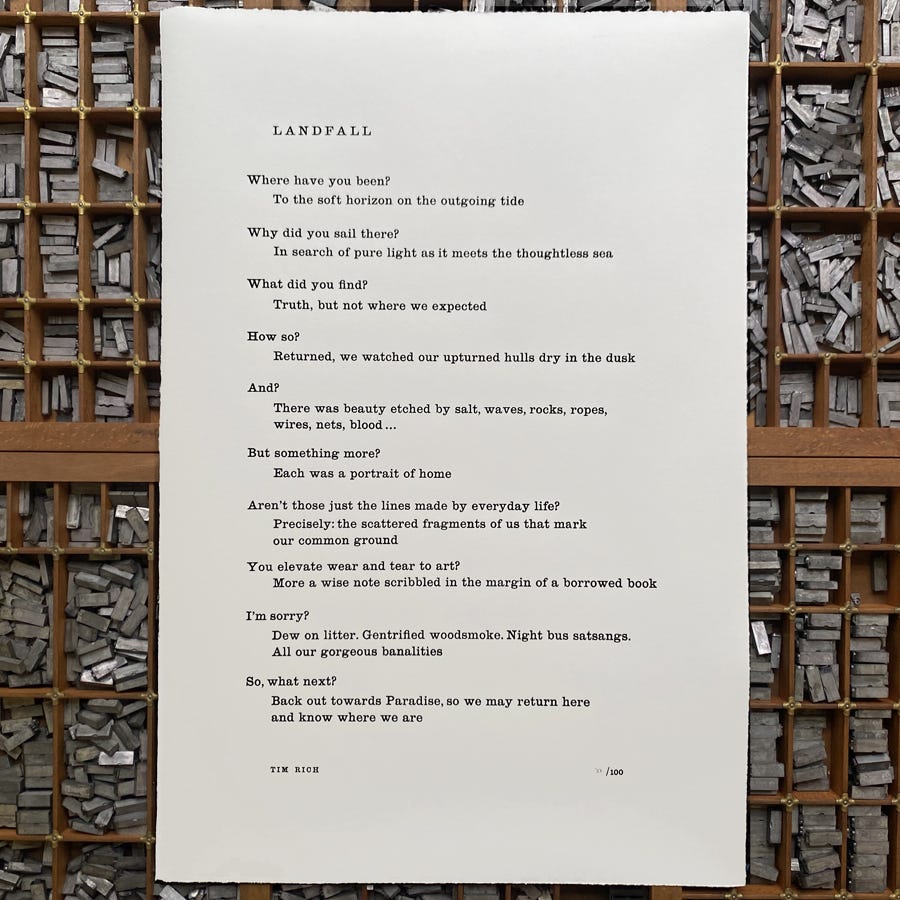 LANDFALL
Where have you been?
To the soft horizon on the outgoing tide
Why did you sail there?
In search of pure light as it meets the thoughtless sea
What did you find?
Truth, but not where we expected
How so?
Returned, we watched our upturned hulls dry in the dusk
And?
There was beauty etched by salt, waves, rocks, ropes,
wires, nets, blood...
But something more?
Each was a portrait of home
Aren't those just the lines made by everyday life?
Precisely: the scattered fragments of us that mark
our common ground
You elevate wear and tear to art?
More a wise note scribbled in the margin of a borrowed book
I'm sorry?
Dew on litter. Gentrified woodsmoke. Night bus satsangs.
All our gorgeous banalities
So, what next?
Back out towards Paradise, so we may return here
and know where we are
TIM RICH
/100